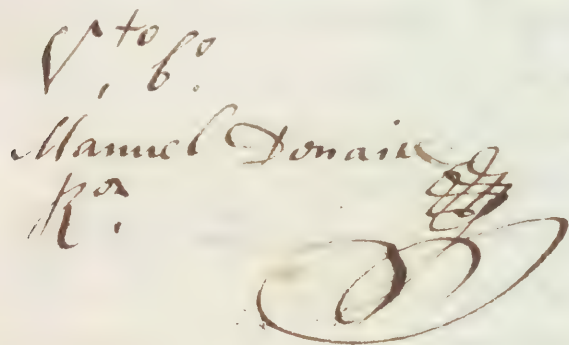 V.to b.o
Manuel Donaire
R.or